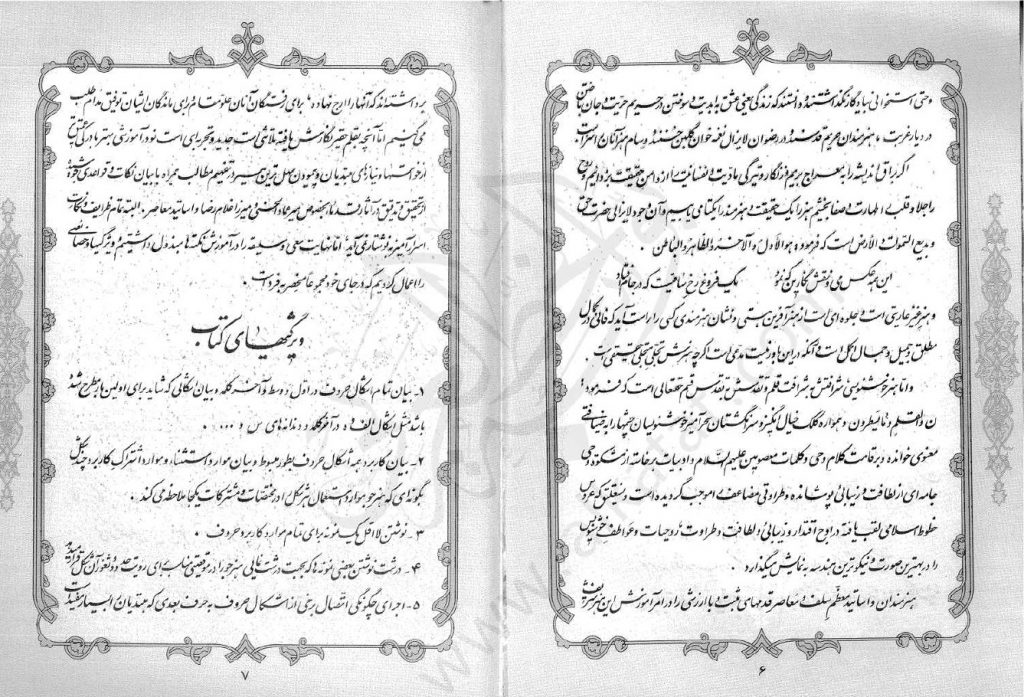 وحتی استخوانی بیادگار نگذاشتند و دانستند که زندگی یعنی عشق به ابدیت و سوختن در حریم حریت و جان باختن
در دیار غربت ، هنرمندان حریم قدسند و در رضوان لایزال نغمه خوان گلبن حسنند و رسام سر آنان
اگر براق اندیشه را به معراج بریم و زنگار و تیرگی مادیت و نفسانیت را از دامن حقیقت بزدائیم و روح
را جلا و قلب را طهارت و صفا بخشیم هنر را یک حقیقت و هنرمند را یکتا می یابیم و آن وجود لایزالی حضرت حق
و بدیع السموات و الارض است که فرمود هو الاول و الآخر و الظاهر و الباطن .
این همه عکس می و نقش نگارین که نمود یک فروغ رخ ساقیست که در جام افتاد
و هنر غیر عاریتی است و جلوه ای است از هنر آفرین هستی و نشان هنرمندی کسی را راست آید که فانی در کمال
مطلق و جمیل و جمال اکمل است و آنکه در این باور نیست مدعی است اگر چه هنرش تجلی تجلی حقیقتی است .
و اما هنر خوشنویسی شرافتش به شرافت قلم و تقدسش به تقدس قسم حقتعالی است که فرمود :
ن والقلم و ما یسطرون و همواره کلک خیال انگیز و سرانگشتان سحرآمیز خوشنویسان جهان را به ضیافتی
معنوی خوانده و بر قامت کلام وحی و کلمات معصومین علیهم السلام و ادبیات برخاسته از مشکوة وحی
جامه ای از لطافت و زیبائی پوشانده و طراوتی مضاعف را موجب گردیده است و نستعلیق که عروس
خطوط اسلامی لقب یافته در اوج اقتدار و زیبائی و لطافت و طراوت روحیات و عواطف خوشنویس
را در بهترین صورت و نیکوترین هندسه به نمایش میگذارد .
هنرمندان و اساتید معظم سلف و معاصر قدمهای مثبت و با ارزشی را در امر آموزش این هنر شریف
۶
برداشته اند که آنها را ارج نهاده و برای رفتگان آنان علو مقام و برای ماندگان ایشان توفیق مدام طلب
می کنیم اما آنچه بقلم حقیر نگارش یافته تلاشی است جدید و تجربه ای است نو در آموزش هنر با درک عمیق
از خواستها و نیازهای مبتدیان و پیمودن سهل ترین مسیر در تفهیم مطالب همراه با بیان نکات و قواعدی که ریشه
از تحقیق و تدقیق در آثار قدما بخصوص میر عماد الحسنی و میرزا غلامرضا و اساتید معاصر . البته تمام ظرایف و نکات
اسرارآمیز به نوشتار نمی آید ، اما نهایت سعی و سلیقه را در آموزش نکته ها مبذول داشتیم و ویژگیها و خصائصی
را اعمال کردیم که در جای خود مجموعاً منحصر به فرد است .
ویژگیهای کتاب
۱- بیان تمام اشکال حروف در اول و وسط و آخر کلمه و بیان نکاتی که شاید برای اولین بار مطرح شده
باشد مثل اشکال الف و ه در آخر کلمه و دندانه های س و .....
۲- بیان کاربرد همه اشکال حروف بطور مبسوط و بیان موارد استثناء و موارد اشتراک کاربرد چند شکل
بگونه ای که هنرجو موارد استعمال هر شکل را در مختصات و مشترکات یکجا ملاحظه می کند .
۳- نوشتن لااقل یک نمونه برای تمام موارد کاربرد حروف .
۴- درشت نوشتن بعضی نمونه ها که بجهت درشت نمائی هنرجو را در موقعیتی مناسب برای رؤیت حدود و ثغور آن شکل قرار میدهد .
۵- اجرای چگونگی اتصال برخی از اشکال حروف به حرف بعدی که مبتدیان را بسیار مفید است
۷